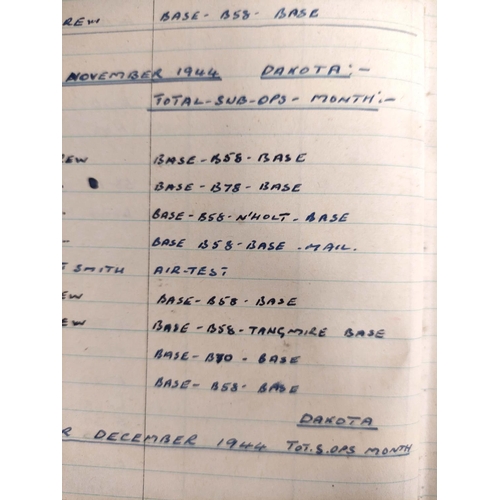 REW BASE - B58 - BASE
NOVEMBER 1944 DAKOTA:-
TOTAL-SUB-OPS- MONTH:-
EW BASE - B58 - BASE
BASE - B78 - BASE
BASE - B58 - N'HOLT - BASE
BASE B58 - BASE - MAIL.
T SMITH AIR-TEST
EW BASE - B58 - BASE
EW BASE - B58 - TANGMIRE BASE
BASE - B70 - BASE
BASE - B58 - BASE
DAKOTA
R DECEMBER 1944 TOT.S.OPS MONTH